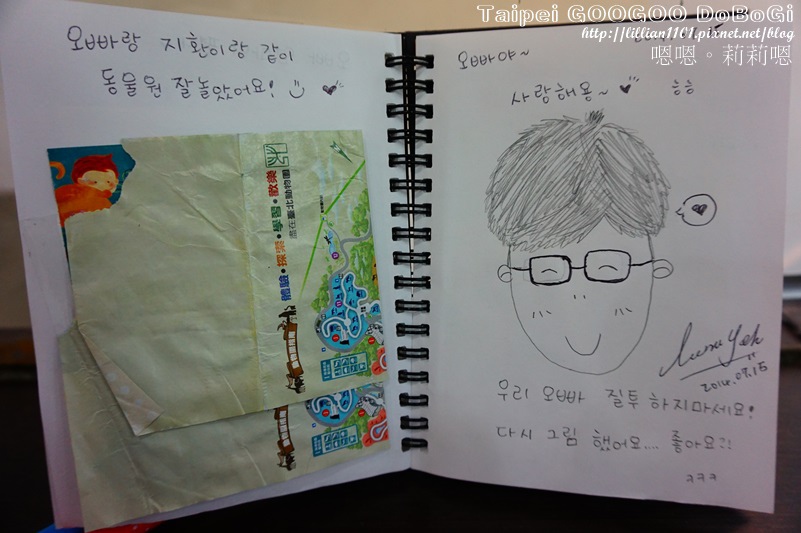 Taipei GOOGOO DoBoGi
http://lillian1101.pixnet.net/blog
嗯嗯。莉莉嗯
오빠랑 지환이랑 같이
동물원 잘놀았어요!
體驗·探索·學習·歡樂
盡在臺北動物園
오빠야~
사랑해용~ 흥흥
2014.09.15
우리 오빠 질투 하지마세요!
다시 그림 했어요.... 좋아요?!
ㅋㅋㅋ